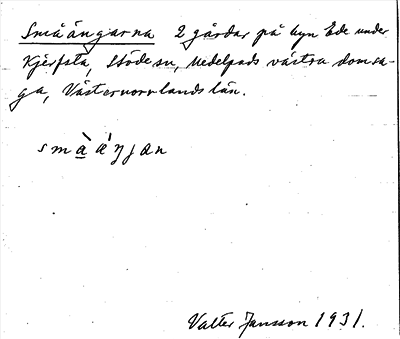 Småängarna 2 gårdar på byn Ede under
Kjérfsta, Stöde sn, Medelpads västra domsa-
ga, Västernorrlands län.
Valter Jansson 1931.